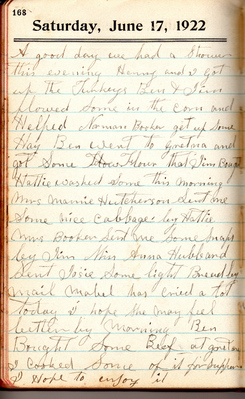 168
Saturday, June 17, 1922
A good day we had a Shower
this evening Henry and I got
up the Turkeys Ben & Jim
plowed Some in the corn and
Helped Norman Booker get up Some
Hay Ben went to Gretna and
got Some Flour that Jim
Hattie washed Some this Morning
Mrs Mamie Hutcherson Sent me
Some nice Cabbages by Hattie
Mrs Booker Sent me Some Snaps
by Jim Mrs Anna Hubbard
Sent Josie Some light Bread by
mail Mabel has cried a lot
Today I hope she may feel
better by Morning Ben
Bought Some Beef at
I Cooked Some of it for Supper
I Hope to enjoy it